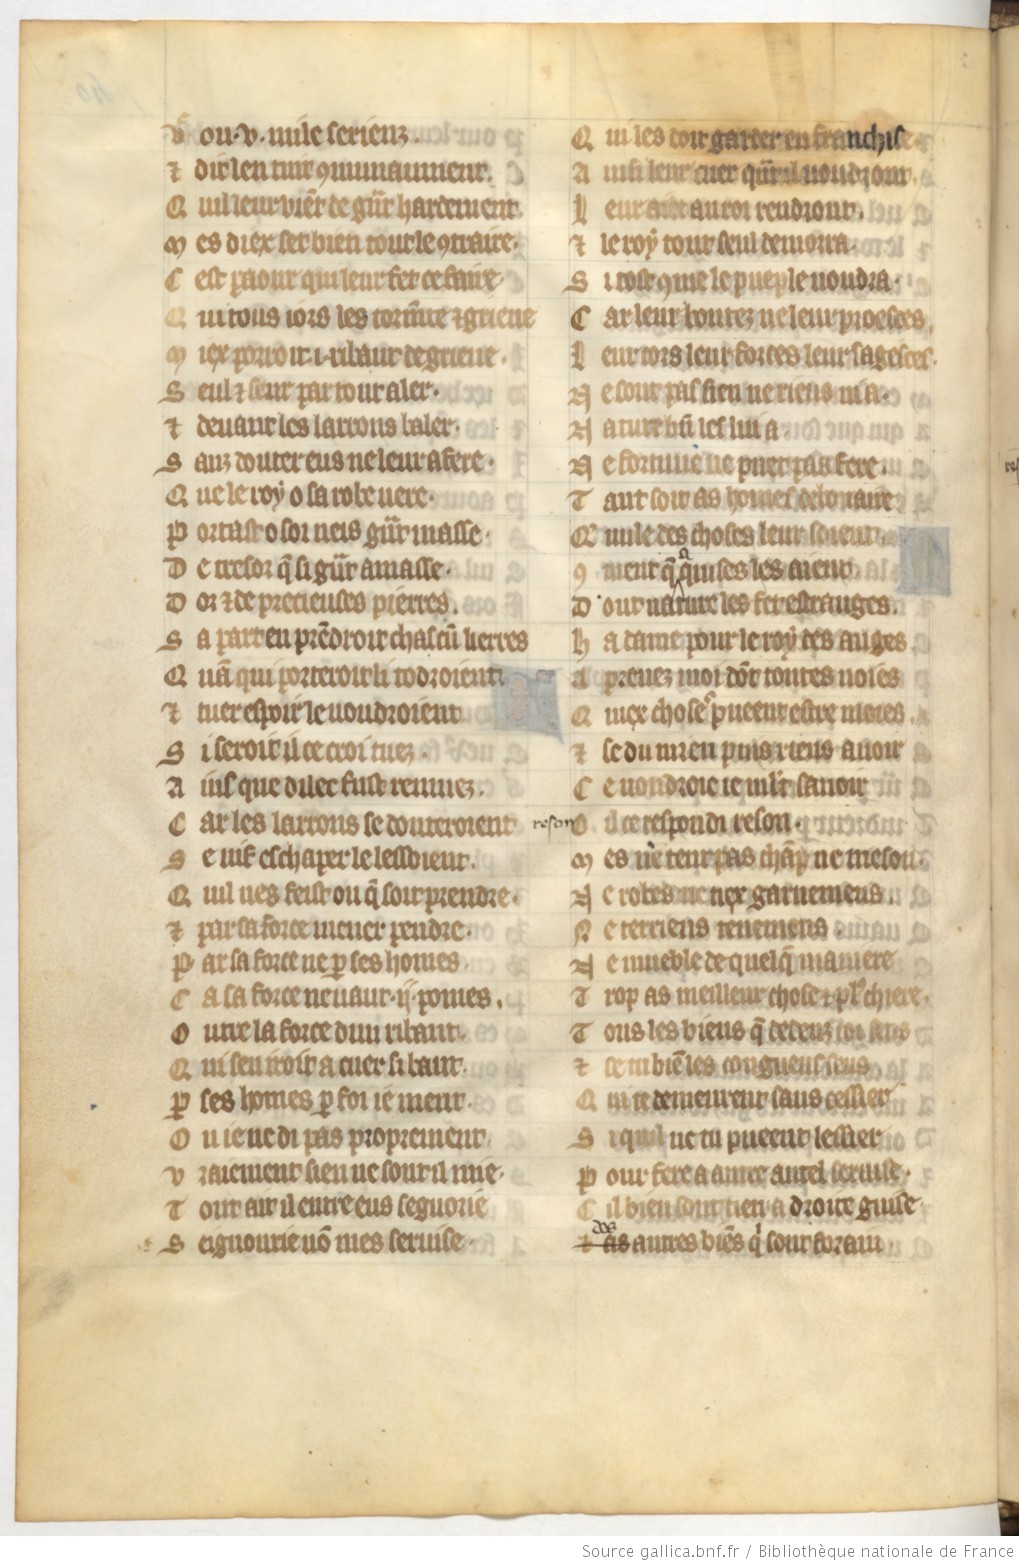 V ou .v. mile serienz.
⁊ dit len tuit ꝯmunaument.
Q uil leur vient de gnt hardement
M es diex set bien tout le ꝯtraire.
C est paour qui leur fet ce faire
Q ui tous iors les tormente ⁊ grieue
M iex porroit .i. ribaut de grieue.
S eul ⁊ seur par tout aler.
⁊ deuant les larrons baler.
S anz douter eus ne leur afere.
Q ue le roy o sa robe uere.
P ortast o soi neis gnt masse.
D e tresor q̃ si gnt amasse.
D or ⁊ de precieuses pierres.
S a part en prẽdroit chascũ lierres
Q uãqui porteroit li todroient
⁊ tuer espoir le uoudroient
S i seroit il ce croi tuez.
A ins que dilec fust remuez.
C ar les larrons se douteroient
S e uif eschaper le lessoient.
Q uil nes feist ou q̃ soit prendre.
⁊ par sa force mener pendre.
P ar sa force ne ꝑ ses homes.
C a sa force ne uaut .ii. pomes.
O utre la force dun ribaut.
Q ui sen iroit a cuer si baut.
P ses homes ꝑ foi ie ment.
O u ie ne di pas proprement.
V raiement sien ne sont il mie.
T out ait il entre eus segnorie
S eignourie nõ mes seruise.
Q ui les doit garder en franchise
A insi leur cuer qñt il uoudront
L eur aide au roi rendront.
⁊ le roy tout seul demorra.
S i tost ꝯme le pueple uoudra.
C ar leur bontez ne leur proesces.
L eur cors leur forces leur sagesces.
N e sont pas sien ne riens ni a.
N ature bñ les lui a
N e fortune ne puet pas fere.
T ant soit as homes debonaire
Q nule des choses leur soient.
ꝯ ment q̃ aquises les aient.
D ont nature les fet estranges.
h a dame pour le roy des anges
A prenez moi dõt toutes uoies
Q uiex choses pueent estre moies.
⁊ se du mien puis riens auoir
C e uoudroie ie mlt sauoir
reson O il ce respondi reson.
M es nen tent pas chãp ne meson.
N e robes ne tiex garnemens.
N e terriens tenemens.
N e mueble de quelq̃ maniere
T rop as meilleur chose ⁊ pl9 chiere.
T ous les biens q̃ dedenz toi sens
⁊ se tu biẽ les congnois sens
Q ui te demeurent sans cessier
S i quil ne tu pueent lessier
P our fere a autre autel seruise.
C il bien sont tien a droite guise.
des
⁊ as autres biẽs qi sont forain.
Source gallica.bnf.fr / Bibliothèque nationale de France